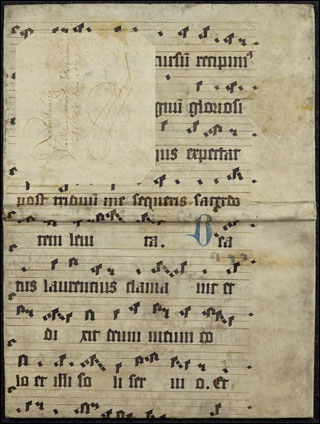 cursū recipim⁹
gnū gloriosi
expectat
post triduū me sequeris sacerdo
tem leui ta. Bea
tus laurentius clama uit et
di xit deum meum co
lo et illi so li ser ui o. Et